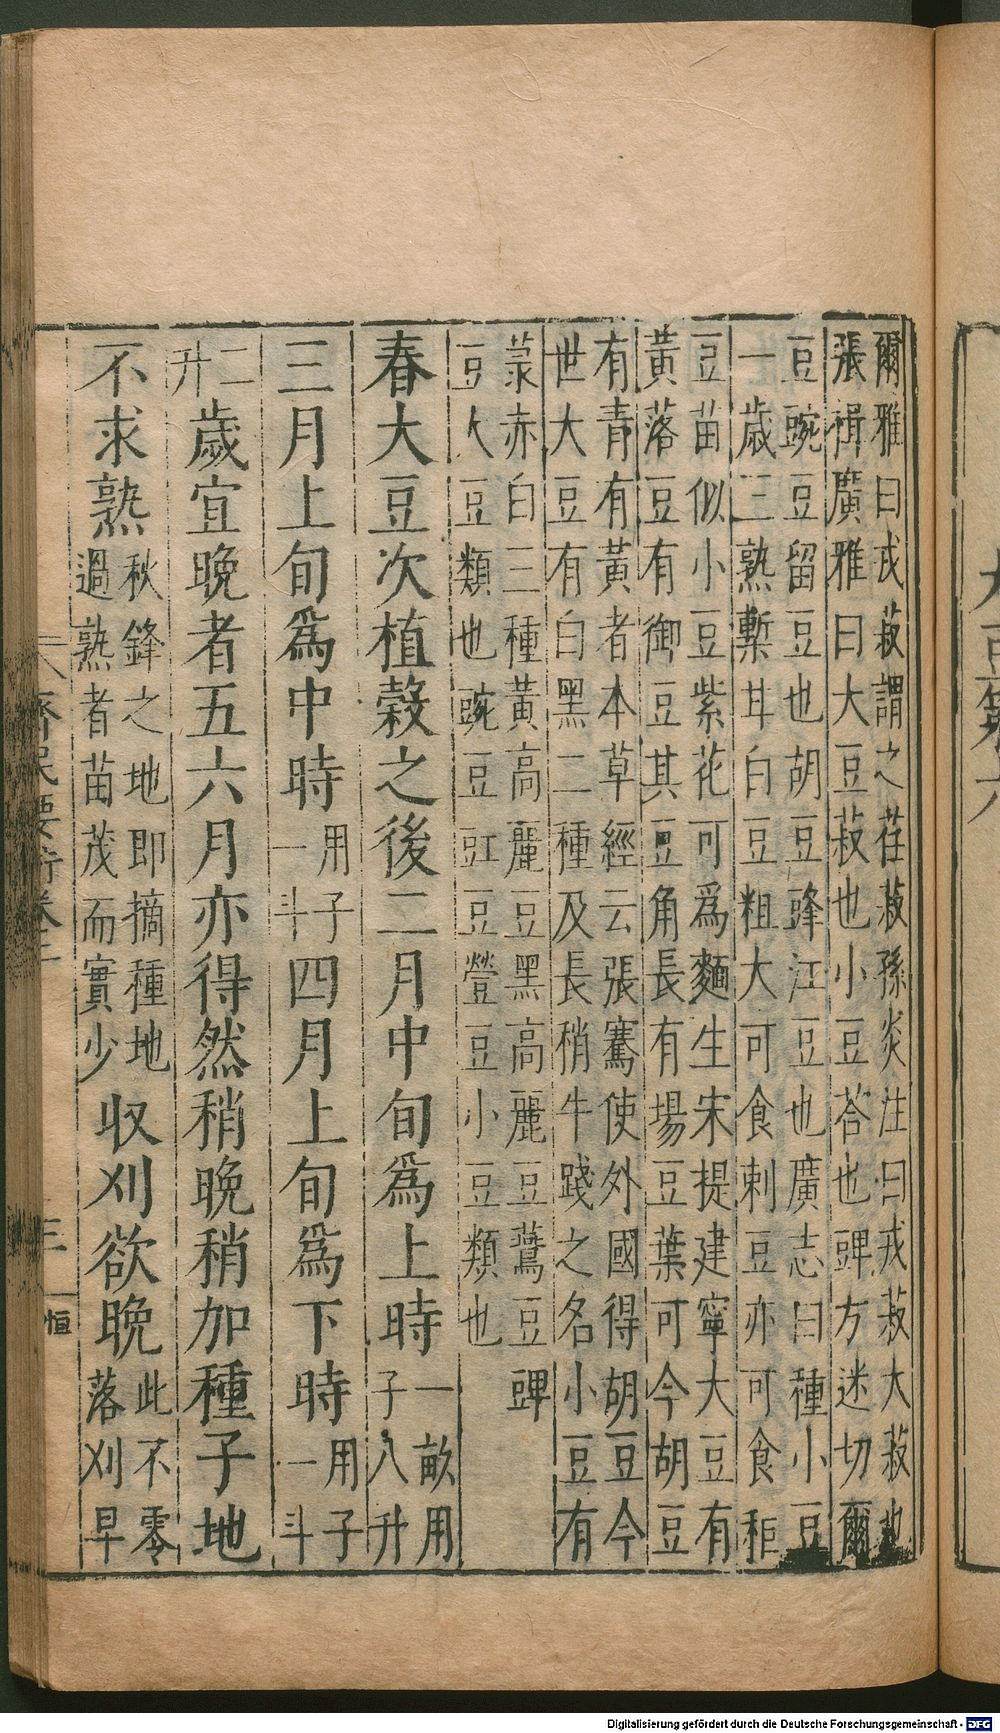 大豆第六
爾雅曰戎菽謂之荏菽孫炎注曰戎菽大菽也
張揖廣雅曰大豆菽也小豆荅也豍方迷切爾
豆豌豆留豆也胡豆䜶江豆也廣志曰種小豆
一歲三熟槧甘白豆粗大可食刺豆亦可食秬
豆苗似小豆紫花可爲麵生宋提建寧大豆有
黃落豆有御豆其豆角長有場豆葉可今胡豆
有青有黃者本草經云張騫使外國得胡豆今
世大豆有白黑二種及長稍牛踐之名小豆有
菉赤白三種黃高麗豆黑高麗豆鷰豆豍
豆人豆類也豌豆豇豆營豆小豆類也
春大豆次植穀之後二月中旬爲上時一畝用子八升
三月上旬爲中時用子一斗四月上旬爲下時用子一斗
二升歲宜晚者五六月亦得然稍晚稍加種子地
不求熟秋鋒之地即摘種地過熟者苗茂而實少收刈欲晚此不零落刈早
齊民要術卷二
三
恒
Digitalisierung gefördert durch die Deutsche Forschungsgemeinschaft - DFG